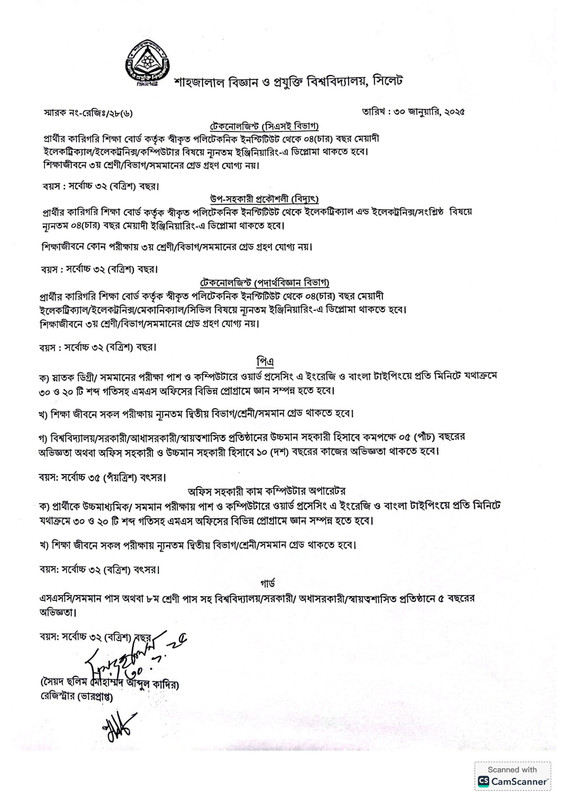 শাহজালাল বিজ্ঞান ও প্রযুক্তি বিশ্ববিদ্যালয়, সিলেট
স্মারক নং-রেজিঃ/২৮(৬)
তারিখ : ৩০ জানুয়ারি, ২০২৫
টেকনোলজিস্ট (সিএসই বিভাগ)
প্রার্থীর কারিগরি শিক্ষা বোর্ড কর্তৃক স্বীকৃত পলিটেকনিক ইনস্টিটিউট থেকে ০৪(চার) বছর মেয়াদী
ইলেকট্রিক্যাল/ইলেকট্রনিক্স/কম্পিউটার বিষয়ে ন্যূনতম ইঞ্জিনিয়ারিং-এ ডিপ্লোমা থাকতে হবে।
শিক্ষাজীবনে ৩য় শ্রেণী/বিভাগ/সমমানের গ্রেড গ্রহণ যোগ্য নয়।
বয়স : সর্বোচ্চ ৩২ (বত্রিশ) বছর।
উপ-সহকারী প্রকৌশলী (বিদ্যুৎ)
প্রার্থীর কারিগরি শিক্ষা বোর্ড কর্তৃক স্বীকৃত পলিটেকনিক ইনস্টিটিউট থেকে ইলেকট্রিক্যাল এন্ড ইলেকট্রনিক্স/সংশ্লিষ্ঠ বিষয়ে
ন্যূনতম ০৪(চার) বছর মেয়াদী ইঞ্জিনিয়ারিং-এ ডিপ্লোমা থাকতে হবে।
শিক্ষাজীবনে কোন পরীক্ষায় ৩য় শ্রেণী/বিভাগ/সমমানের গ্রেড গ্রহণ যোগ্য নয়।
বয়স : সর্বোচ্চ ৩২ (বত্রিশ) বছর।
টেকনোলজিস্ট (পদার্থবিজ্ঞান বিভাগ)
প্রার্থীর কারিগরি শিক্ষা বোর্ড কর্তৃক স্বীকৃত পলিটেকনিক ইনস্টিটিউট থেকে ০৪(চার) বছর মেয়াদী
ইলেকট্রিক্যাল/ইলেকট্রনিক্স/মেকানিক্যাল/সিভিল বিষয়ে ন্যূনতম ইঞ্জিনিয়ারিং-এ ডিপ্লোমা থাকতে হবে।
শিক্ষাজীবনে ৩য় শ্রেণী/বিভাগ/সমমানের গ্রেড গ্রহণ যোগ্য নয়।
বয়স : সর্বোচ্চ ৩২ (বত্রিশ) বছর।
পিএ
ক) স্নাতক ডিগ্রী/ সমমানের পরীক্ষা পাশ ও কম্পিউটারে ওয়ার্ড প্রসেসিং এ ইংরেজি ও বাংলা টাইপিংয়ে প্রতি মিনিটে যথাক্রমে
৩০ ও ২০ টি শব্দ গতিসহ এমএস অফিসের বিভিন্ন প্রোগ্রামে জ্ঞান সম্পন্ন হতে হবে।
খ) শিক্ষা জীবনে সকল পরীক্ষায় ন্যূনতম দ্বিতীয় বিভাগ/শ্রেনী/সমমান গ্রেড থাকতে হবে।
গ) বিশ্ববিদ্যালয়/সরকারী/আধাসরকারী/স্বায়ত্বশাসিত প্রতিষ্ঠানের উচ্চমান সহকারী হিসাবে কমপক্ষে ০৫ (পাঁচ) বছরের
অভিজ্ঞতা অথবা অফিস সহকারী ও উচ্চমান সহকারী হিসাবে ১০ (দশ) বছরের কাজের অভিজ্ঞতা থাকতে হবে।
বয়স: সর্বোচ্চ ৩৫ (পঁয়ত্রিশ) বৎসর।
অফিস সহকারী কাম কম্পিউটার অপারেটর
ক) প্রার্থীকে উচ্চমাধ্যমিক/ সমমান পরীক্ষায় পাশ ও কম্পিউটারে ওয়ার্ড প্রসেসিং এ ইংরেজি ও বাংলা টাইপিংয়ে প্রতি মিনিটে
যথাক্রমে ৩০ ও ২০ টি শব্দ গতিসহ এমএস অফিসের বিভিন্ন প্রোগ্রামে জ্ঞান সম্পন্ন হতে হবে।
খ) শিক্ষা জীবনে সকল পরীক্ষায় ন্যূনতম দ্বিতীয় বিভাগ/শ্রেনী/সমমান গ্রেড থাকতে হবে।
বয়স: সর্বোচ্চ ৩২ (বত্রিশ) বৎসর।
গার্ড
এসএসসি/সমমান পাস অথবা ৮ম শ্রেণী পাস সহ বিশ্ববিদ্যালয়/সরকারী/ অধাসরকারী/স্বায়ত্বশাসিত প্রতিষ্ঠানে ৫ বছরের
অভিজ্ঞতা।
বয়স: সর্বোচ্চ ৩২ (বত্রিশ) বছর
৩০.১.২৫
(সৈয়দ ছলিম মোহাম্মদ আব্দুল কাদির)
রেজিস্ট্রার (ভারপ্রাপ্ত)
Scanned with
CS CamScanner